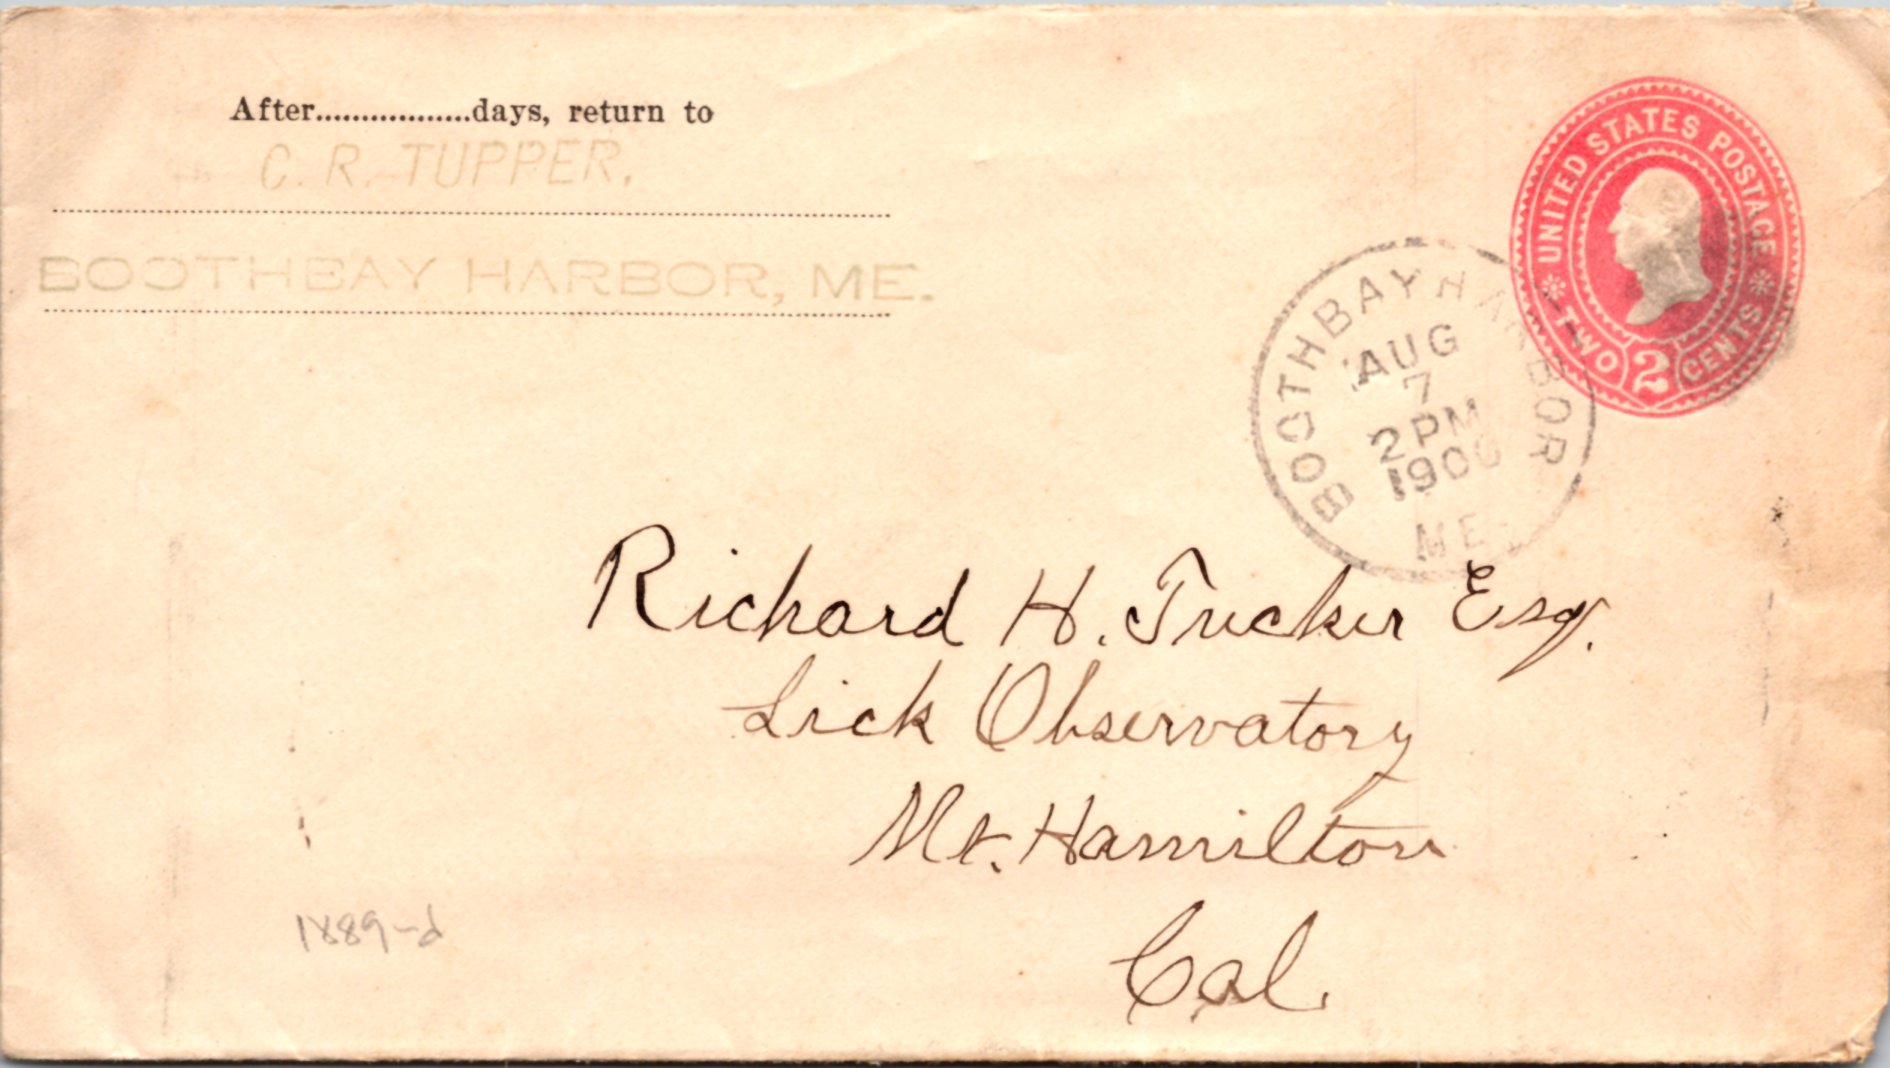 After.................days, return to
C. R. TUPPER.
BOOTHBAY HARBOR, ME.
UNITED STATES POSTAGE
TWO 2 CENTS
BOOTHBAY HARBOR
AUG
7
2 PM
1900
ME.
Richard H. Tucker Esq.
Lick Observatory
Mt. Hamilton
Cal.
1889-d